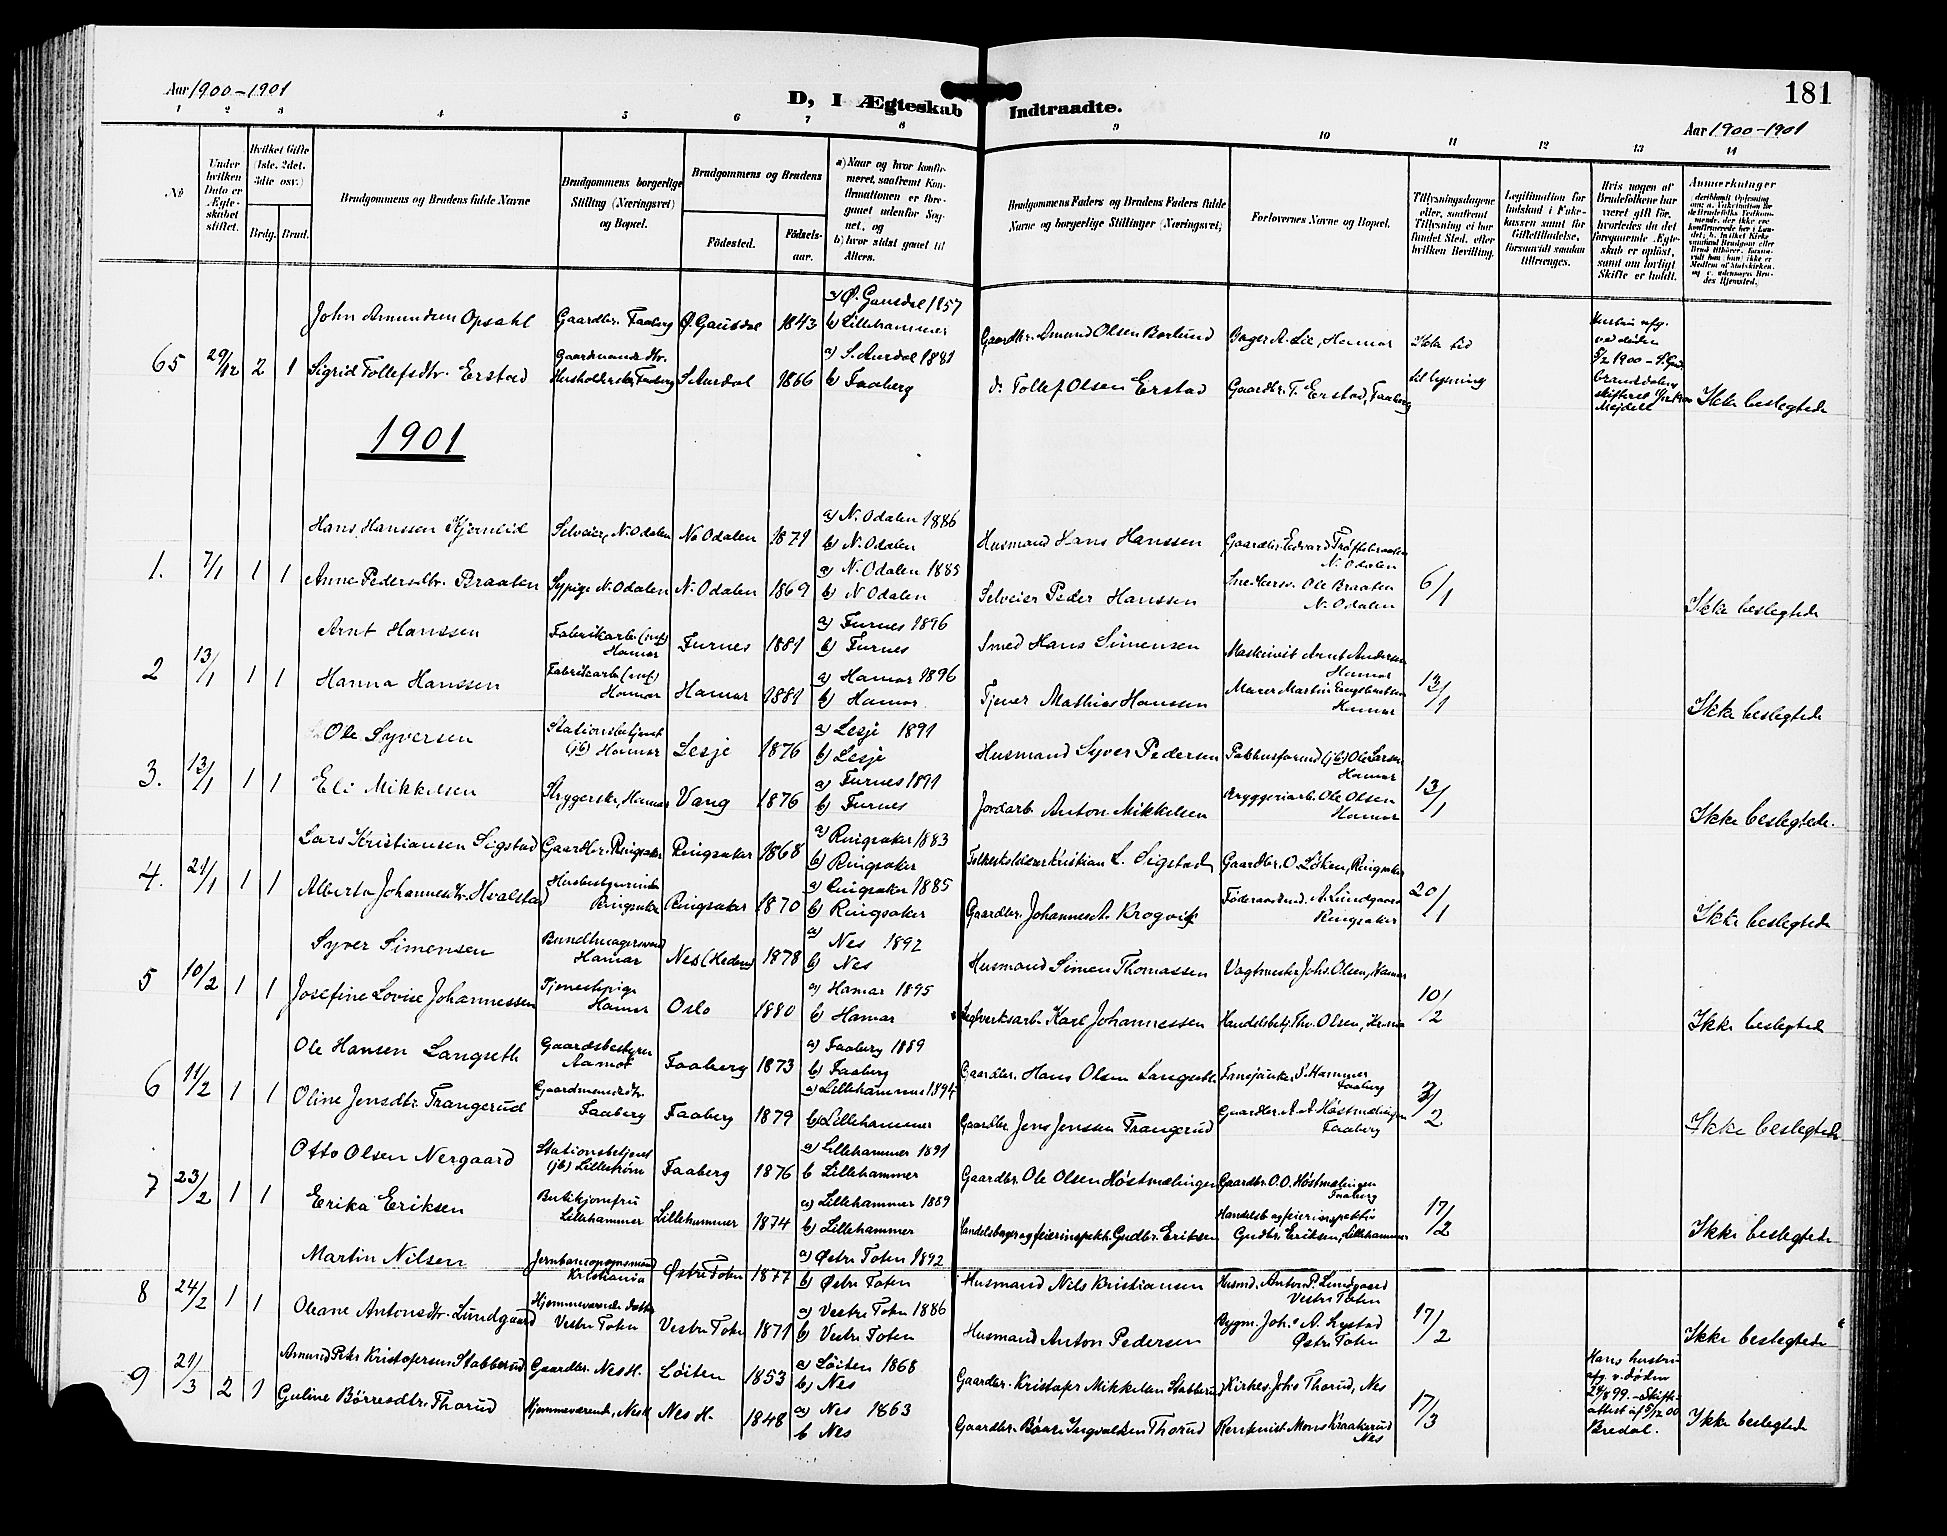 Aar 1900-1901
D, I Ægteskab Indtraadte.
181
Aar 1900-1901
1 2 3 4 5 6 7 8 9 10 11 12 13 14
No
Under hvilken Dato er Ægteskabet stiftet.
Hvilket Gifte (1ste. 2det. 3die osv.)
Brdg. Brud.
Brudgommens og Brudens fulde Navne
Brudgommens borgerlige Stilling (Næringsvei) og Bopæl.
Brudgommens og Brudens
Fødested.
Fødselsaar.
a) Naar og hvor konfirmeret, saafremt Konfirmationen er foregaaet udenfor Sognet, og
b) hvor sidst gaaet til Alters.
Brudgommens Faders og Brudens Faders fulde Navne og borgerlige Stillinger (Næringsvei)
Forlovernes Navne og Bopæl.
Tillysningsdagene eller, saafremt Tillysning ei har fundet Sted, efter hvilken Bevilling.
Legitimation for Indskud i Enkekassen samt for Giftetilladelse, forsaavidt saadan tiltrænges.
Hvis nogen af Brudefolkene har været gift før, hvorledes da det foregaaende Ægteskab er opløst, samt om lovligt Skifte er holdt.
Anmærkninger
John Amundsen Opsahl Gaardbr. Faaberg Ø. Gausdal 1843 a) Ø. Gausdal 1857 b) Lillehammer Gaardbr. Amund Olsen Borlund Bager A. Lie, Hamar Ikke tid
65 29/12 2 1 Sigrid Tollefsdtr. Erstad Gaardmandsdtr. Husholderske, Faaberg S. Aurdal 1866 a) S. Aurdal 1881 b) Faaberg d: Tollef Olsen Erstad Gaardbr. T. Erstad, Faaberg til lysning
Hustru afg. ved døden 5/2 1900 - S. Gudbrandsdalens skifteret Mejdell
Ikke beslegtede
1901
Hans Hanssen Kjernlid Selveier, N. Odalen N. Odalen 1871 a) N. Odalen 1886 b) N. Odalen Husmand Hans Hanssen Gaardbr. Edvard Trøftebraaten N. Odalen
1. 7/1 1 1 Anne Pedersdtr. Braaten Sypige N. Odalen N. Odalen 1869 a) N. Odalen 1885 b) N. Odalen Selveier Peder Hanssen Ole Braaten N. Odalen 6/1 Ikke beslegtede
Arnt Hanssen Fabrikarb. Hamar Furnes 1881 a) Furnes 1896 b) Furnes Smed Hans Simensen Maskinist Arnt Andersen Hamar
2 13/1 1 1 Hanna Hanssen Fabrikarb. Hamar Hamar 1881 a) Hamar 1896 b) Hamar Tjener Mathias Hanssen Murer Martin Hamar 13/1 Ikke beslegtede
Ole Syversen Stationsbetjent (jb) Hamar Lesje 1876 a) Lesje 1891 b) Lesje Husmand Syver Pedersen Pakhusformd (jb) Ole Larsen Hamar
3. 13/1 1 1 Eli Mikkelsen Strygerske, Hamar Vang 1876 a) Furnes 1891 b) Furnes Jordarb. Anton Mikkelsen Bryggeriarb. Ole Olsen Hamar 13/1 Ikke beslegtede.
Lars Kristiansen Sigstad Gaardbr. Ringsaker Ringsaker 1868 a) Ringsaker 1883 b) Ringsaker Kristian L. Sigstad Gaardbr. O. Løken, Ringsaker
4. 21/1 1 1 Alberta Johannesdtr. Hvalstad Husbestyrerinde Ringsaker Ringsaker 1870 a) Ringsaker 1885 b) Ringsaker Gaardbr. Johannes A. Krogvig Føderaadsmd. A. Lundgaard Ringsaker 20/1 Ikke beslegtede
Syver Simensen Bundtmagersvend Hamar Nes (Hedem) 1878 a) Nes 1892 b) Nes Husmand Simen Thomassen Vagtmester Johs. Olsen, Hamar
5 10/2 1 1 Josefine Lovise Johannessen Tjenestepige Hamar Oslo 1880 a) Hamar 1895 b) Hamar Karl Johannessen Handelsbetj. Th. Olsen, Hamar 10/2 Ikke beslegtede
Ole Hansen Langseth Gaardsbestyrer Aamot Faaberg 1873 a) Faaberg 1889 b) Faaberg Gaardbr. Hans Olsen Langseth Fanejunker S. Hammer Faaberg
6 11/2 1 1 Oline Jensdtr. Trangerud Gaardmandsdtr. Faaberg Faaberg 1879 a) Lillehammer 1894 b) Lillehammer Gaardbr. Jens Jenssen Trangerud Gaardbr. A. A. Høstmælingen Faaberg 3/2 Ikke beslegtede
Otto Olsen Nergaard Stationsbetjent (jb) Lillestrøm Faaberg 1876 a) Lillehammer 1891 b Lillehammer Gaardbr. Ole Olsen Høstmælingen Gaardbr. O. O. Høstmælingen Faaberg
7 23/2 1 1 Erika Eriksen Butikjomfru Lillehammer Lillehammer 1874 a) Lillehammer 1889 b) Lillehammer Handelsborger og feierinspekt. Gudbr. Eriksen Handelsb. og feierinspektør Gudbr. Eriksen, Lillehammer 17/2 Ikke beslegtede
Martin Nilsen Jernbanevognmand Kristiania Østre Toten 1877 a) Østre Toten 1892 b) Østre Toten Husmand Nils Kristiansen Husmd. Anton P. Lundgaard Vestre Toten
8 24/2 1 1 Oleane Antonsdtr. Lundgaard Hjemmeværende datter Vestre Toten Vestre Toten 1871 a) Vestre Toten 1886 b) Vestre Toten Husmand Anton Pedersen Bygm. Joh. A. Lystad Østre Toten 17/2 Ikke beslegtede
Amund Peter Kristofersen Stabberud Gaardbr. Nes H. Løiten 1853 a) Løiten 1868 b) Nes Gaardbr. Kristofer Mikkelsen Stabberud Kirkes. Johs Thorud, Nes
9 21/3 2 1 Guline Børresdtr. Thorud Hjemmeværende, Nes H Nes H. 1848 a) Nes 1863 b Nes Gaardbr. Børre Ingvaldsen Thorud Mons Kraakerud Nes 17/3
Hans hustru afg. v. døden 24/8 99. - Skifteattest af 5/12 00 Bredal.
Ikke beslegtede